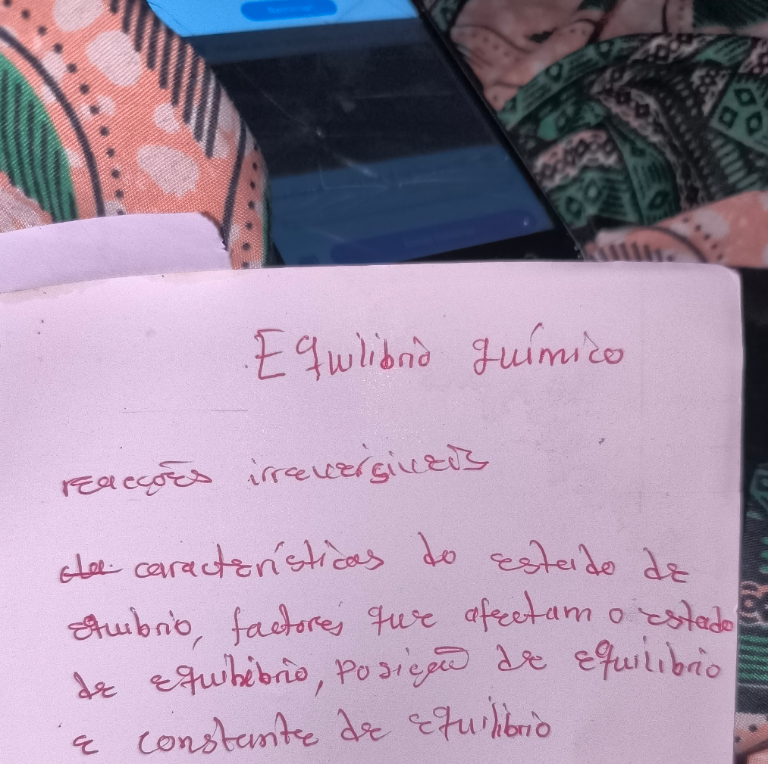 Equlibrio químico
reacções irreversiveis
características do estado de
equibrio, factores que afectam o estado
de equibibrio, Posição de equilibrio
e constante de equilibrio